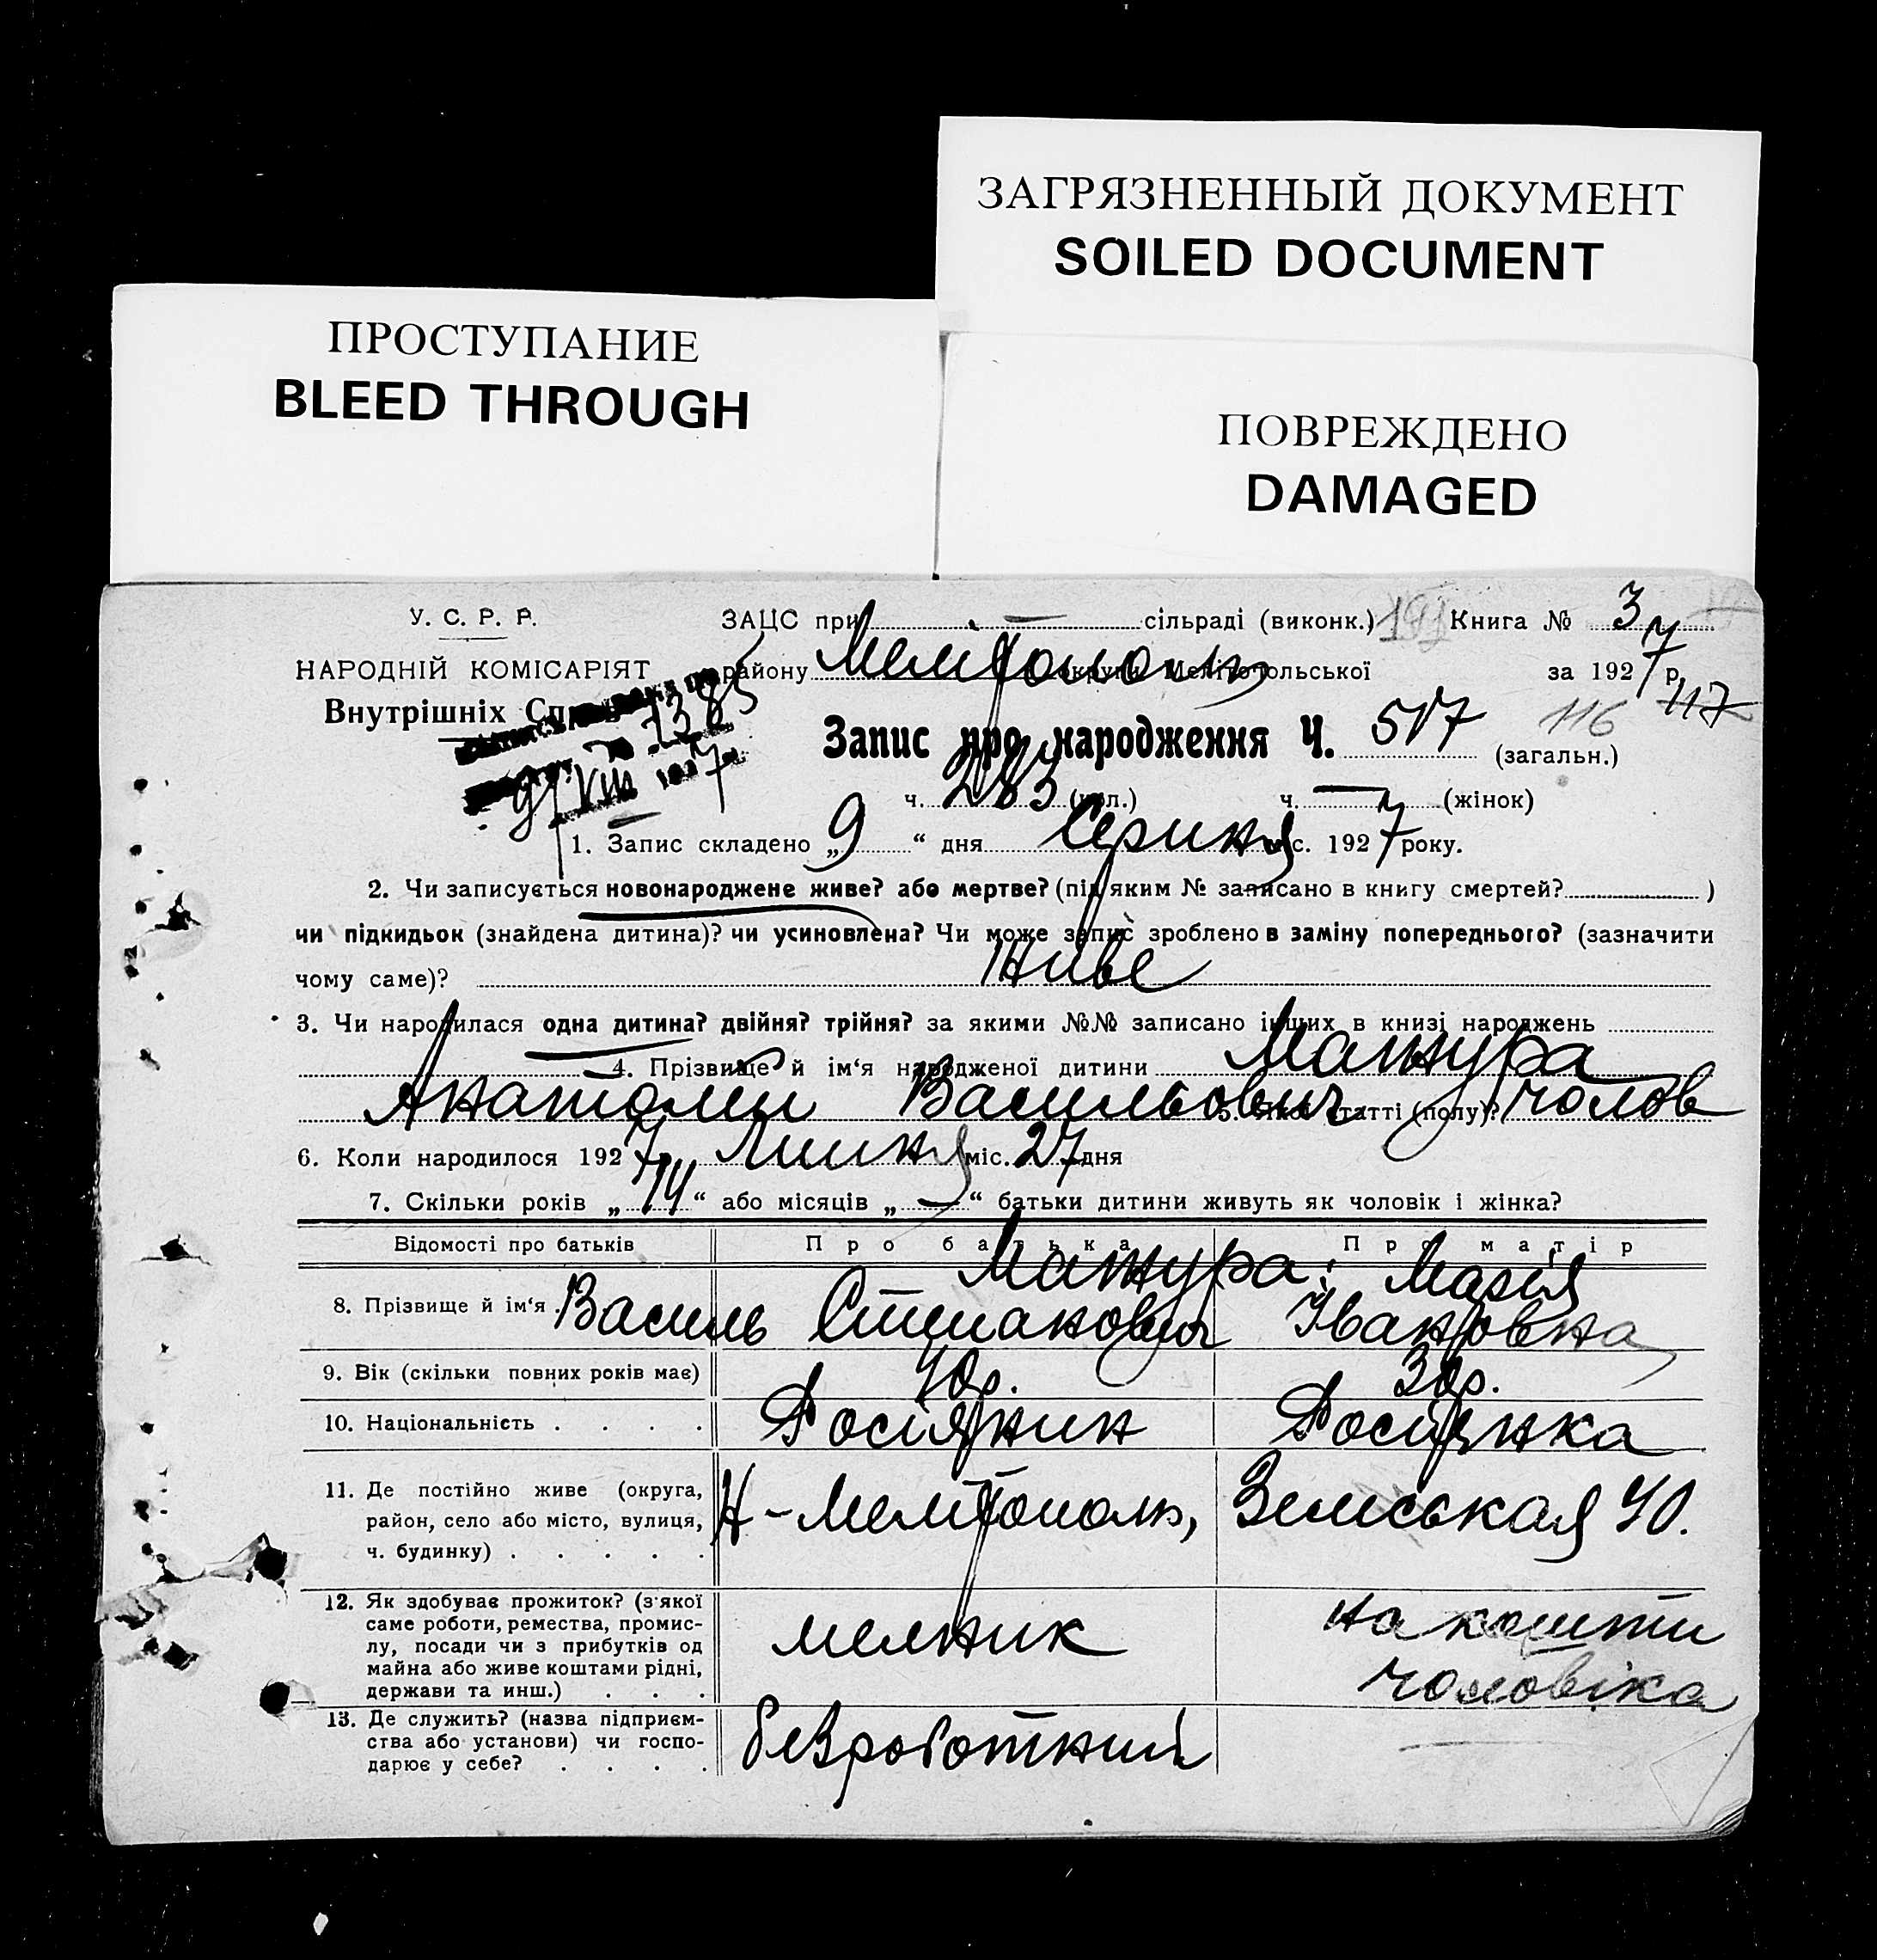 ЗАГРЯЗНЕННЫЙ ДОКУМЕНТ
SOILED DOCUMENT
ПРОСТУПАНИЕ
BLEED THROUGH
ПОВРЕЖДЕНО
DAMAGED
У. С. Р. Р.
ЗАЦС при — сільраді (виконк.) Книга № 3
НАРОДНІЙ КОМІСАРІЯТ
району Мелітополь округи Мелітопольської за 1927 р.
Внутрішніх Справ
1385
9/VIII 1927
117
Запис про народження Ч. 517 (загальн.)
116
ч. 283 (чол.) ч. — (жінок)
1. Запис складено „9“ дня Серпня міс. 1927 року.
2. Чи записується новонароджене живе? або мертве? (під яким № записано в книгу смертей? )
чи підкидьок (знайдена дитина)? чи усиновлена? Чи може запис зроблено в заміну попереднього? (зазначити
чому саме)? Живе
3. Чи народилася одна дитина? двійня? трійня? за якими №№ записано інших в книзі народжень
4. Прізвище й ім‘я народженої дитини Мажура
Анатолий Васильович 5. Якої статті (полу)? чолов
6. Коли народилося 1927 р. Липня міс. 27 дня
7. Скільки років „14“ або місяців „—“ батьки дитини живуть як чоловік і жінка?
Відомості про батьків Про батька Про матір
Мажура: Марія
8. Прізвище й ім‘я . Василь Степанович Івановна
9. Вік (скільки повних років має) 40р. 30р.
10. Національність . . . . Росіянин Росіянка
11. Де постійно живе (округа,
район, село або місто, вулиця,
ч. будинку) . . . . .
Н-Мелітополь, Земськая 40.
12. Як здобуває прожиток? (з'якої
саме роботи, ремества, промис-
лу, посади чи з прибутків од
майна або живе коштами рідні,
держави та инш.) . . .
мелник
на кошти
чоловіка
13. Де служить? (назва підприєм-
ства або установи) чи госпо-
дарює у себе? . . . .
безроботний